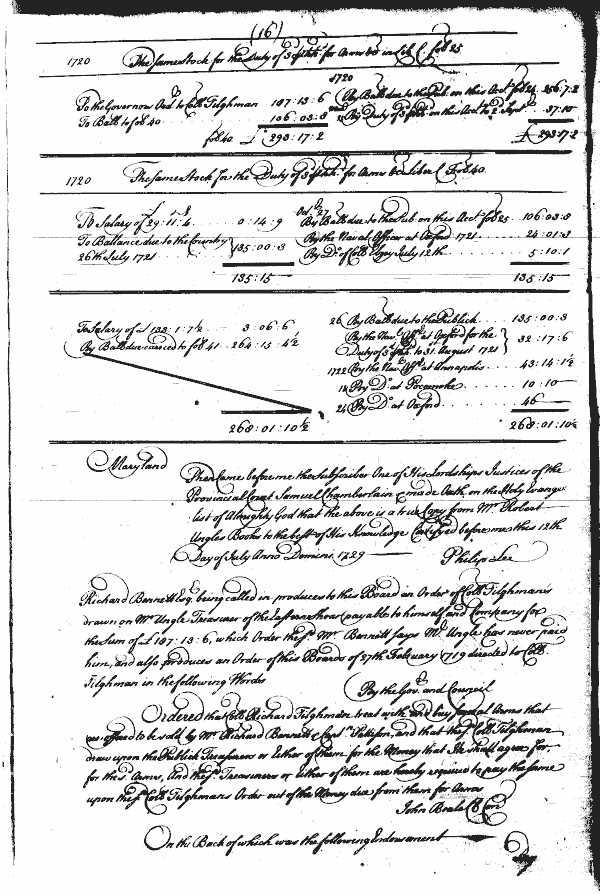 (16)
1720 The same Stock for the Duty of 3d ⅌ hhd for Arms &c in Lib C fol 25
1720
To the Governors Ord. to Colo. Tilghman 187:13:6 By Ball. due to the Pub. on this Acct. fol 24 256:7:2
To Ball to fol 40 106:03:8 By Duty of 3d ⅌ hhd on this Acct to 2 Sept 37:10
fol 40 £ 293:17:2 £ 293:17:2
1720 The same Stock for the Duty of 3d ⅌ hhd for Arms &c Liber C Fol 40
To Salary of 29:11:4 0:14:9 By Ball due to the Pub. on this Acct fol 25 106:03:8
To Ballance due to the Country 135:00:3 By the Naval Officer at Oxford 1721 24:01:3
26th July 1721 By Do. of Colo July 12th 5:10:1
135:15 135:15
To Salary of £ 133:1:7½ 3:06:6 26 By Ball due to the Publick 135:00:3
By Ball due carried to fol 41 264:15:4½ By the Nav. Offr. at Oxford for the
Duty of 3d ⅌ hhd to 31. August 1721 32:17:6
1722 By the Nav. Offr. at Annapolis 43:14:1½
18 By Do. at Pocomoke 10:10
24 By Do. at Oxford 46
268:01:10½ 268:01:10½
Maryland Then Came before me the Subscriber One of His Lordships Justices of the
Provincial Court Samuel Chamberlain & made Oath on the Holy Evange
list of Almighty God that the above is a true Copy from Mr. Robert
Ungles Books to the best of His Knowledge Certifyed before me this 12th
Day of July Anno Domini 1729 Philip Lee
Richard Bennett Esq. being called in produces to this Board an Order of Colo. Tilghman's
drawn on Mr Ungle Treasurer of the Eastern Shore payable to himself and Company for
the Sum of £ 187:13:6, which Order the sd. Mr. Bennett says Mr. Ungle has never paid
him, and also produces an Order of this Boards of 27th February 1719 directed to Colo.
Tilghman in the following Words
By the Gov. and Council
Ordered that Colo. Richard Tilghman treat with and buy several Arms that
are offered to be sold by Mr. Richard Bennett & Capt. Pattison, and that the sd. Colo. Tilghman
draw upon the Publick Treasurers or Either of them for the Money that He shall agree for
for the sd. Arms, And the sd. Treasurers or either of them are hereby required to pay the same
upon the sd. Colo. Tilghmans Order out of the Money due from them for Arms
John Beale Cl Con
On the Back of which was the following Endorsement